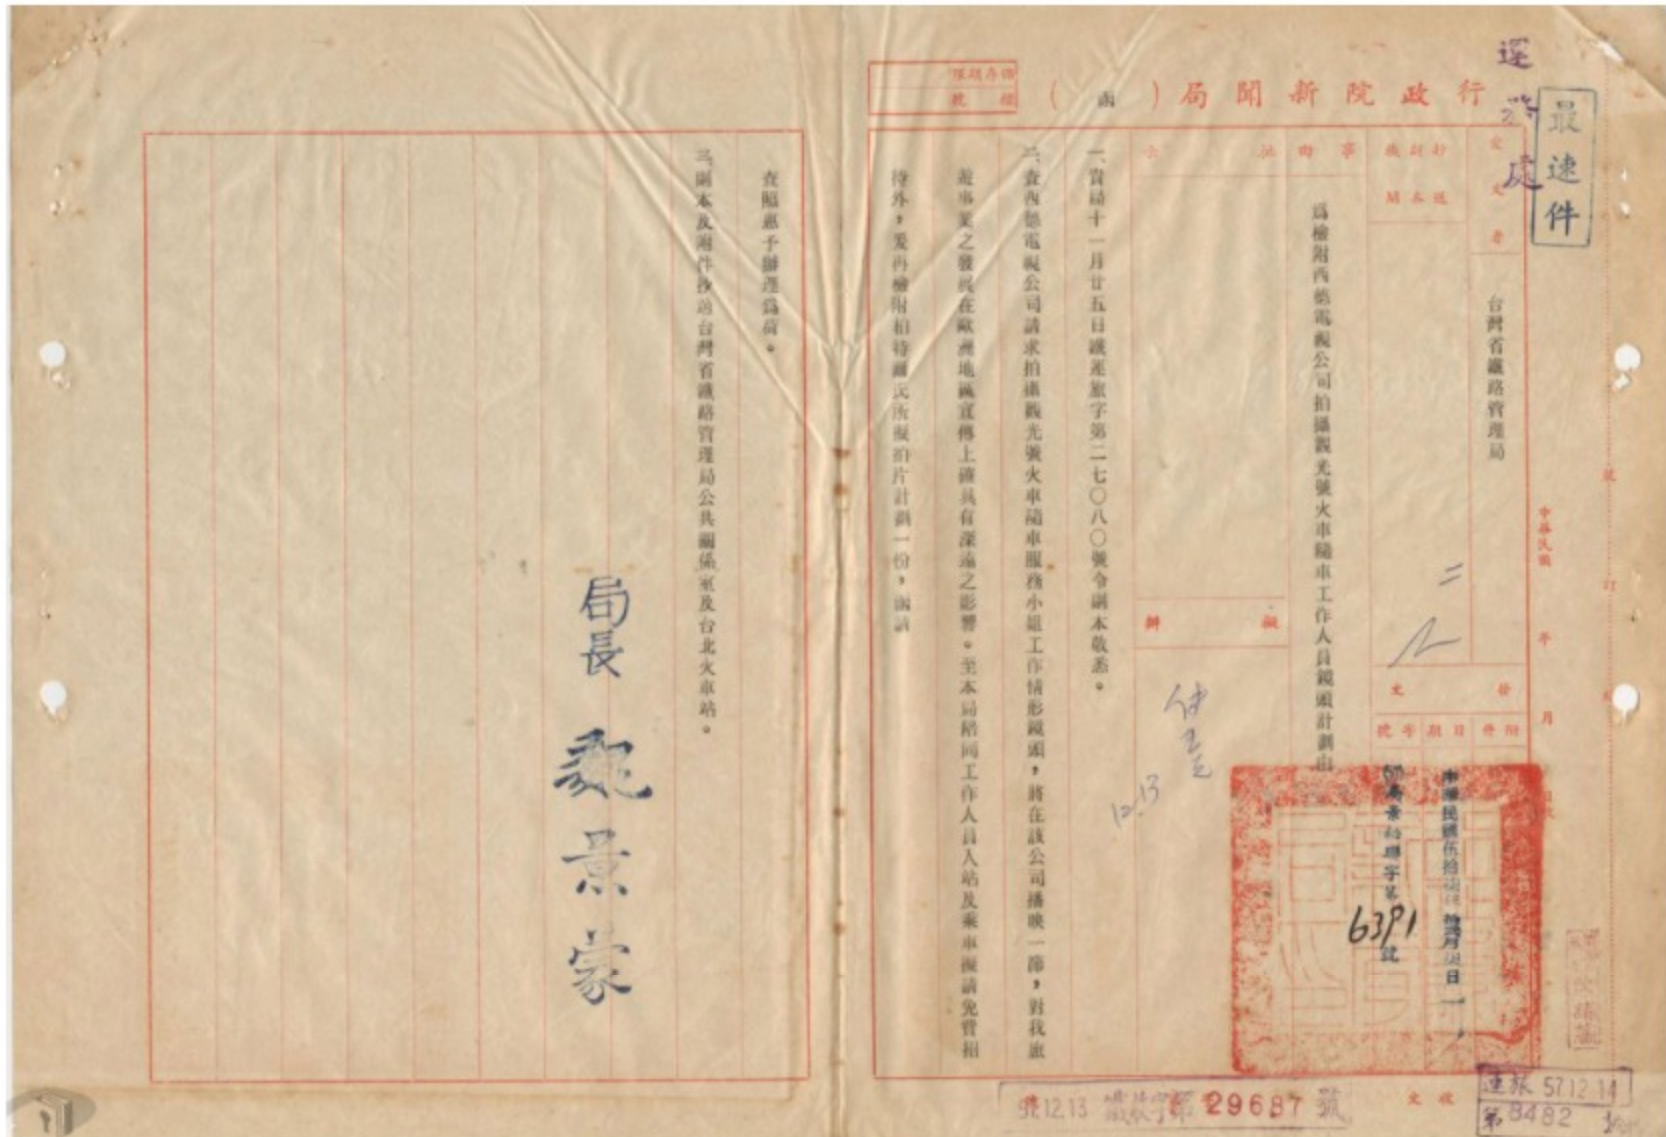 最速件
運務處
行政院新聞局（函）
保存期限
檔號
受文者
台灣省鐵路管理局
抄送副本機關
事由
為檢附西德電視公司拍攝觀光號火車隨車工作人員鏡頭計劃由
批示
擬辦
發文
附件
日期
字號
中華民國 年 月
6391
號
一、貴局十一月廿五日鐵運旅字第二七〇八〇號令副本敬悉。
二、查西德電視公司請求拍攝觀光號火車隨車服務小組工作情形鏡頭，將在該公司播映一節，對我旅
遊事業之發展在歐洲地區宣傳上確具有深遠之影響。至本局陪同工作人員入站及乘車擬請免費招
待外，爰再檢附拍待羅氏所擬拍片計劃一份，函請
查照惠予辦理為荷。
三、副本及附件抄送台灣省鐵路管理局公共關係室及台北火車站。
局長 魏景蒙
12.13
收文
57.12.13
第29687號
運旅 57.12.14
第8482
訂